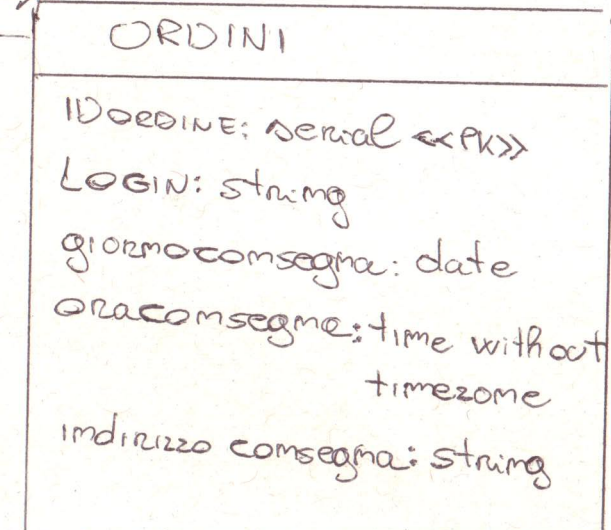 ORDINI
IDORDINE: serial <<PK>>
LOGIN: string
giornoconsegna: date
oraconsegna: time without
timezone
indirizzo consegna: string